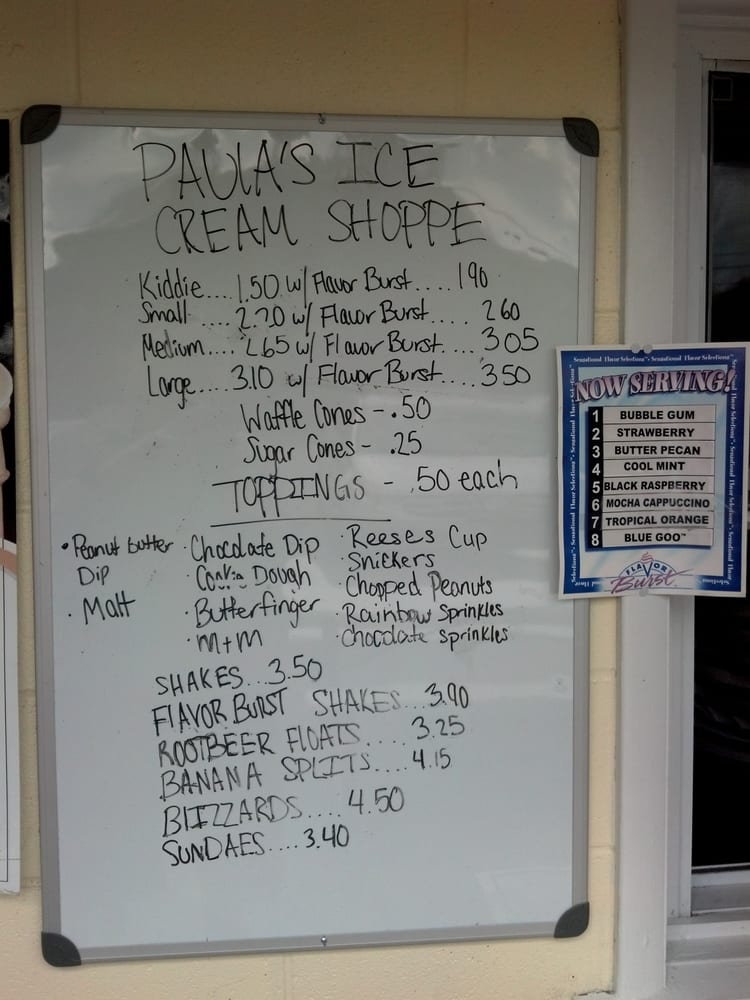 PAULA'S ICE
CREAM SHOPPE
Kiddie....1.50 w/ Flavor Burst....190
Small ....2.20 w/ Flavor Burst.... 260
Medium.... 265 w/ Flavor Burst.... 305
Large....310 w/ Flavor Burst....350
Waffle Cones - .50
Sugar Cones - .25
TOPPINGS - .50 each
• Peanut butter Dip
• Malt
• Chocolate Dip
• Cookie Dough
• Butterfinger
• M+M
• Reeses Cup
• Snickers
• Chopped Peanuts
• Rainbow Sprinkles
• Chocolate sprinkles
SHAKES...3.50
FLAVOR BURST SHAKES...3.90
ROOTBEER FLOATS.... 3.25
BANANA SPLITS....4.15
BLIZZARDS....4.50
SUNDAES....3.40
Sensational Flavor Selections™
NOW SERVING!
1 BUBBLE GUM
2 STRAWBERRY
3 BUTTER PECAN
4 COOL MINT
5 BLACK RASPBERRY
6 MOCHA CAPPUCCINO
7 TROPICAL ORANGE
8 BLUE GOO™
FLAVOR
Burst